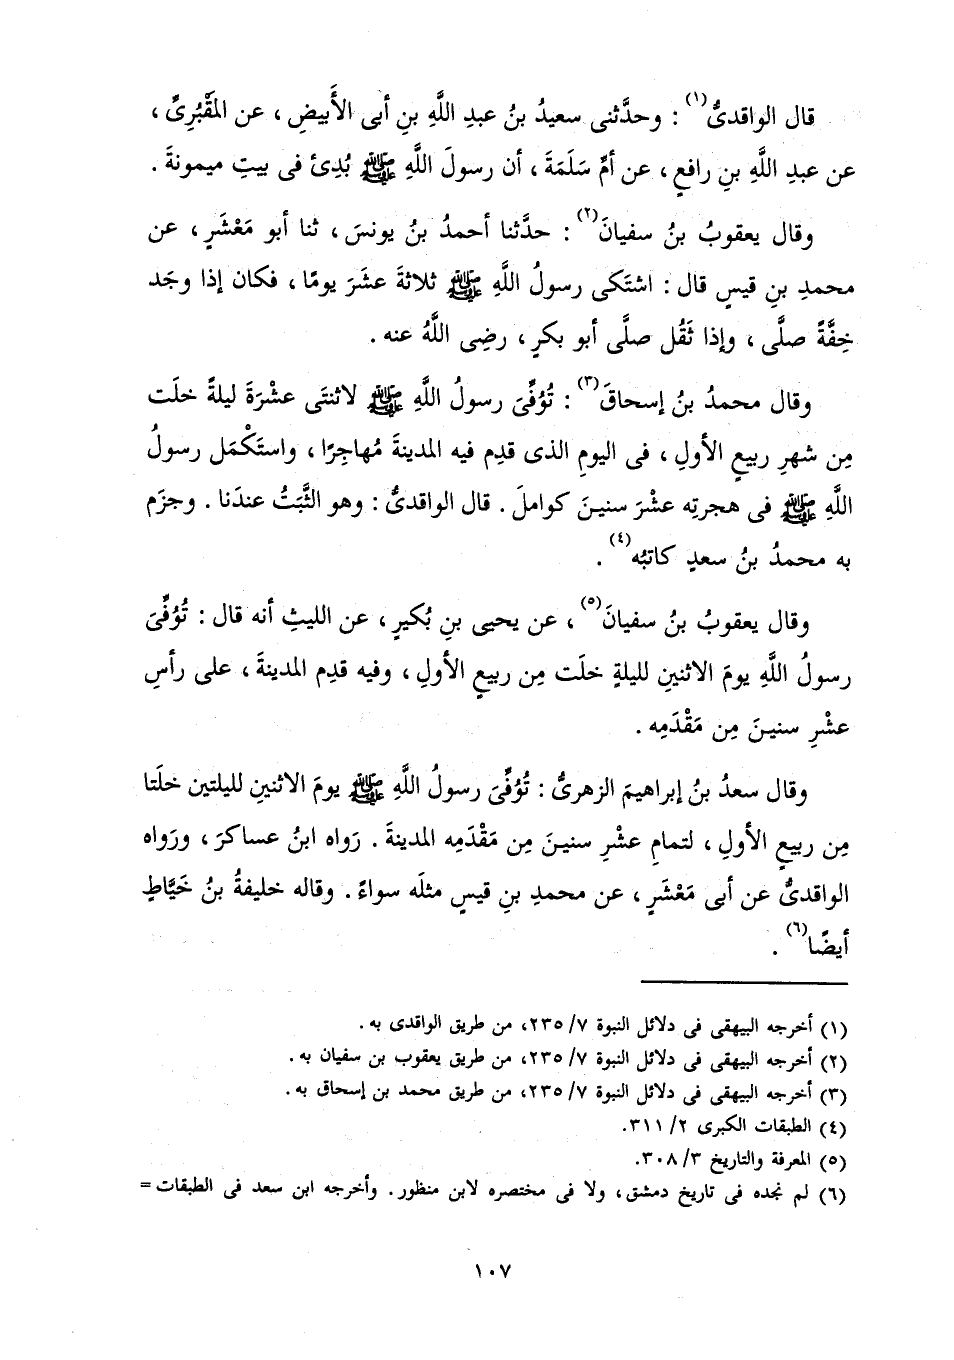 قال الواقدىُّ(١) : وحدَّثنى سعيدُ بنُ عبدِ اللَّهِ بنِ أبى الأَبيضِ ، عن المَقْبُرِىِّ ،
عن عبدِ اللَّهِ بنِ رافعٍ ، عن أمِّ سَلَمَةَ ، أن رسولَ اللَّهِ ﷺ بُدِئ فى بيتِ ميمونةَ .
وقال يعقوبُ بنُ سفيانَ(٢) : حدَّثنا أحمدُ بنُ يونسَ ، ثنا أبو مَعْشَرٍ ، عن
محمدِ بنِ قيسٍ قال : اشتَكى رسولُ اللَّهِ ﷺ ثلاثةَ عشَرَ يومًا ، فكان إذا وجَد
خِفَّةً صلَّى ، وإذا ثَقُل صلَّى أبو بكرٍ ، رضِى اللَّهُ عنه .
وقال محمدُ بنُ إسحاقَ(٣) : تُوُفِّىَ رسولُ اللَّهِ ﷺ لاثنتَى عشْرَةَ ليلةً خلَت
مِن شهرِ ربيعٍ الأولِ ، فى اليومِ الذى قدِم فيه المدينةَ مُهاجِرًا ، واستَكْمَل رسولُ
اللَّهِ ﷺ فى هجرتِه عشْرَ سنينَ كواملَ . قال الواقدىُّ : وهو الثَّبَتُ عندَنا . وجزَم
به محمدُ بنُ سعدٍ كاتبُه(٤) .
وقال يعقوبُ بنُ سفيانَ(٥) ، عن يحيى بنِ بُكيرٍ ، عن الليثِ أنه قال : تُوُفِّىَ
رسولُ اللَّهِ يومَ الاثنينِ لليلةٍ خلَت مِن ربيعٍ الأولِ ، وفيه قدِم المدينةَ ، على رأسِ
عشْرِ سنينَ مِن مَقْدَمِه .
وقال سعدُ بنُ إبراهيمَ الزهرىُّ : تُوُفِّىَ رسولُ اللَّهِ ﷺ يومَ الاثنينِ لليلتين خلَتا
مِن ربيعٍ الأولِ ، لتمامِ عشْرِ سنينَ مِن مَقْدَمِه المدينةَ . رَواه ابنُ عساكرَ ، ورَواه
الواقدىُّ عن أبى مَعْشَرٍ ، عن محمدِ بنِ قيسٍ مثلَه سواءً . وقاله خليفةُ بنُ خَيَّاطٍ
أيضًا(٦) .
(١) أخرجه البيهقى فى دلائل النبوة ٧/ ٢٣٥، من طريق الواقدى به .
(٢) أخرجه البيهقى فى دلائل النبوة ٧/ ٢٣٥، من طريق يعقوب بن سفيان به .
(٣) أخرجه البيهقى فى دلائل النبوة ٧/ ٢٣٥، من طريق محمد بن إسحاق به .
(٤) الطبقات الكبرى ٢/ ٣١١.
(٥) المعرفة والتاريخ ٣/ ٣٠٨.
(٦) لم نجده فى تاريخ دمشق، ولا فى مختصره لابن منظور . وأخرجه ابن سعد فى الطبقات =
١٠٧